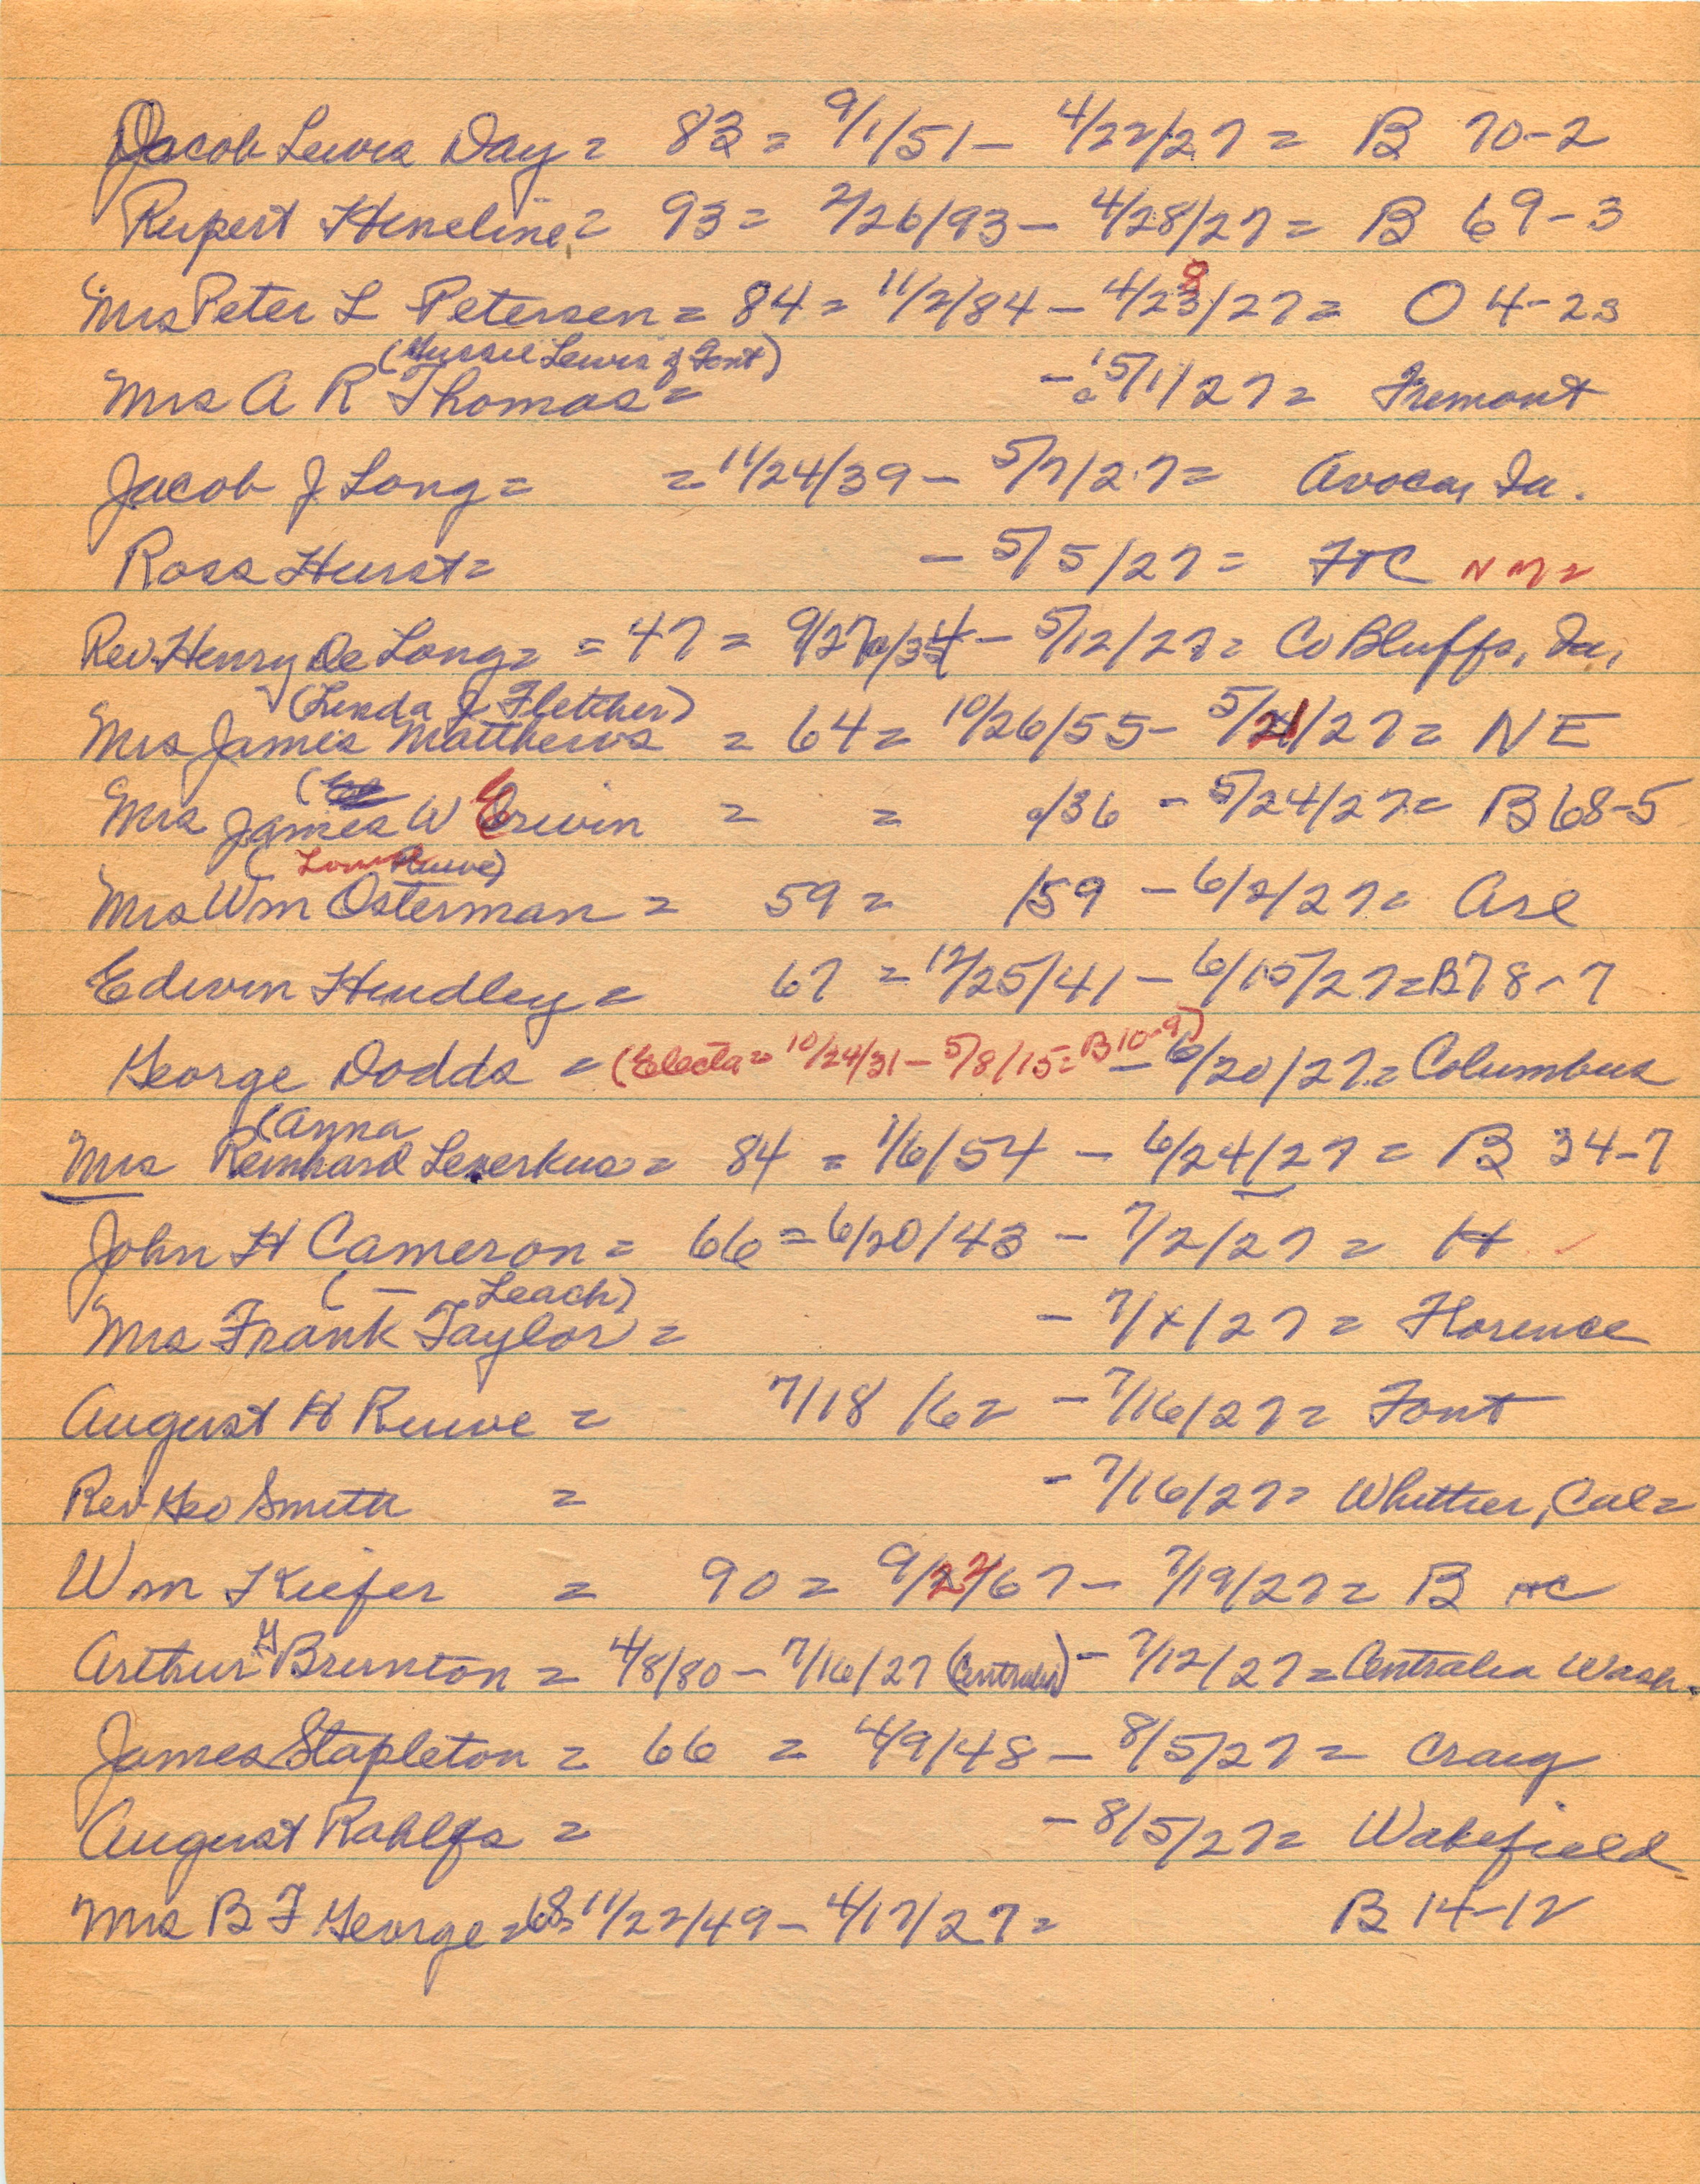 Jacob Lewis Day = 83 = 9/1/51 - 4/22/27 = B 70-2
Rupert Hineline = 93 = 2/26/93 - 4/28/27 = B 69-3
8
Mrs Peter L Petersen = 84 = 11/2/84 - 4/23/27 = O 4-23
(Lewis of Font)
Mrs A R Thomas = - 5/1/27 = Fremont
Jacob J Long = = 11/24/39 - 5/7/27 = Avoca, Ia.
Ross Hurst = - 5/5/27 = FtC N M =
Rev. Henry De Long = = 47 = 9/27/34 - 5/12/27 = Co Bluffs, Ia,
(Linda J Fletcher)
Mrs James Matthews = 64 = 10/26/55 - 5/21/27 = NE
Mrs James W Erwin = = /36 - 5/24/27 = B 68-5
(Ruwe)
Mrs Wm Osterman = 59 = /59 - 6/2/27 = Arl
Edwin Hindley = 67 = 12/25/41 - 6/15/27 = B 78-7
George Dodds = (Electa = 10/24/31 - 5/8/15 = B 10-9) - 6/20/27 = Columbus
(Anna
Mrs Reinhard Leserkus = 84 = 1/6/54 - 6/24/27 = B 34-7
John H Cameron = 66 = 6/20/43 - 7/2/27 = H
( — Leach)
Mrs Frank Taylor = - 7/x/27 = Florence
August H Ruwe = 7/18/62 - 7/16/27 = Font
Rev Geo Smith = - 7/16/27 = Whittier, Cal =
Wm Kiefer = 90 = 9/22/67 - 7/19/27 = B HC
Arthur G Brunton = 4/8/80 - 7/16/27 (Centralia) - 7/12/27 = Centralia Wash.
James Stapleton = 66 = 4/9/48 - 8/5/27 = Craig
August Rahlfs = - 8/5/27 = Wakefield
Mrs B F George = 68 = 11/22/49 - 4/17/27 = B 14-12